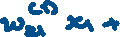 w₂₁⁽¹⁾ x₁ +